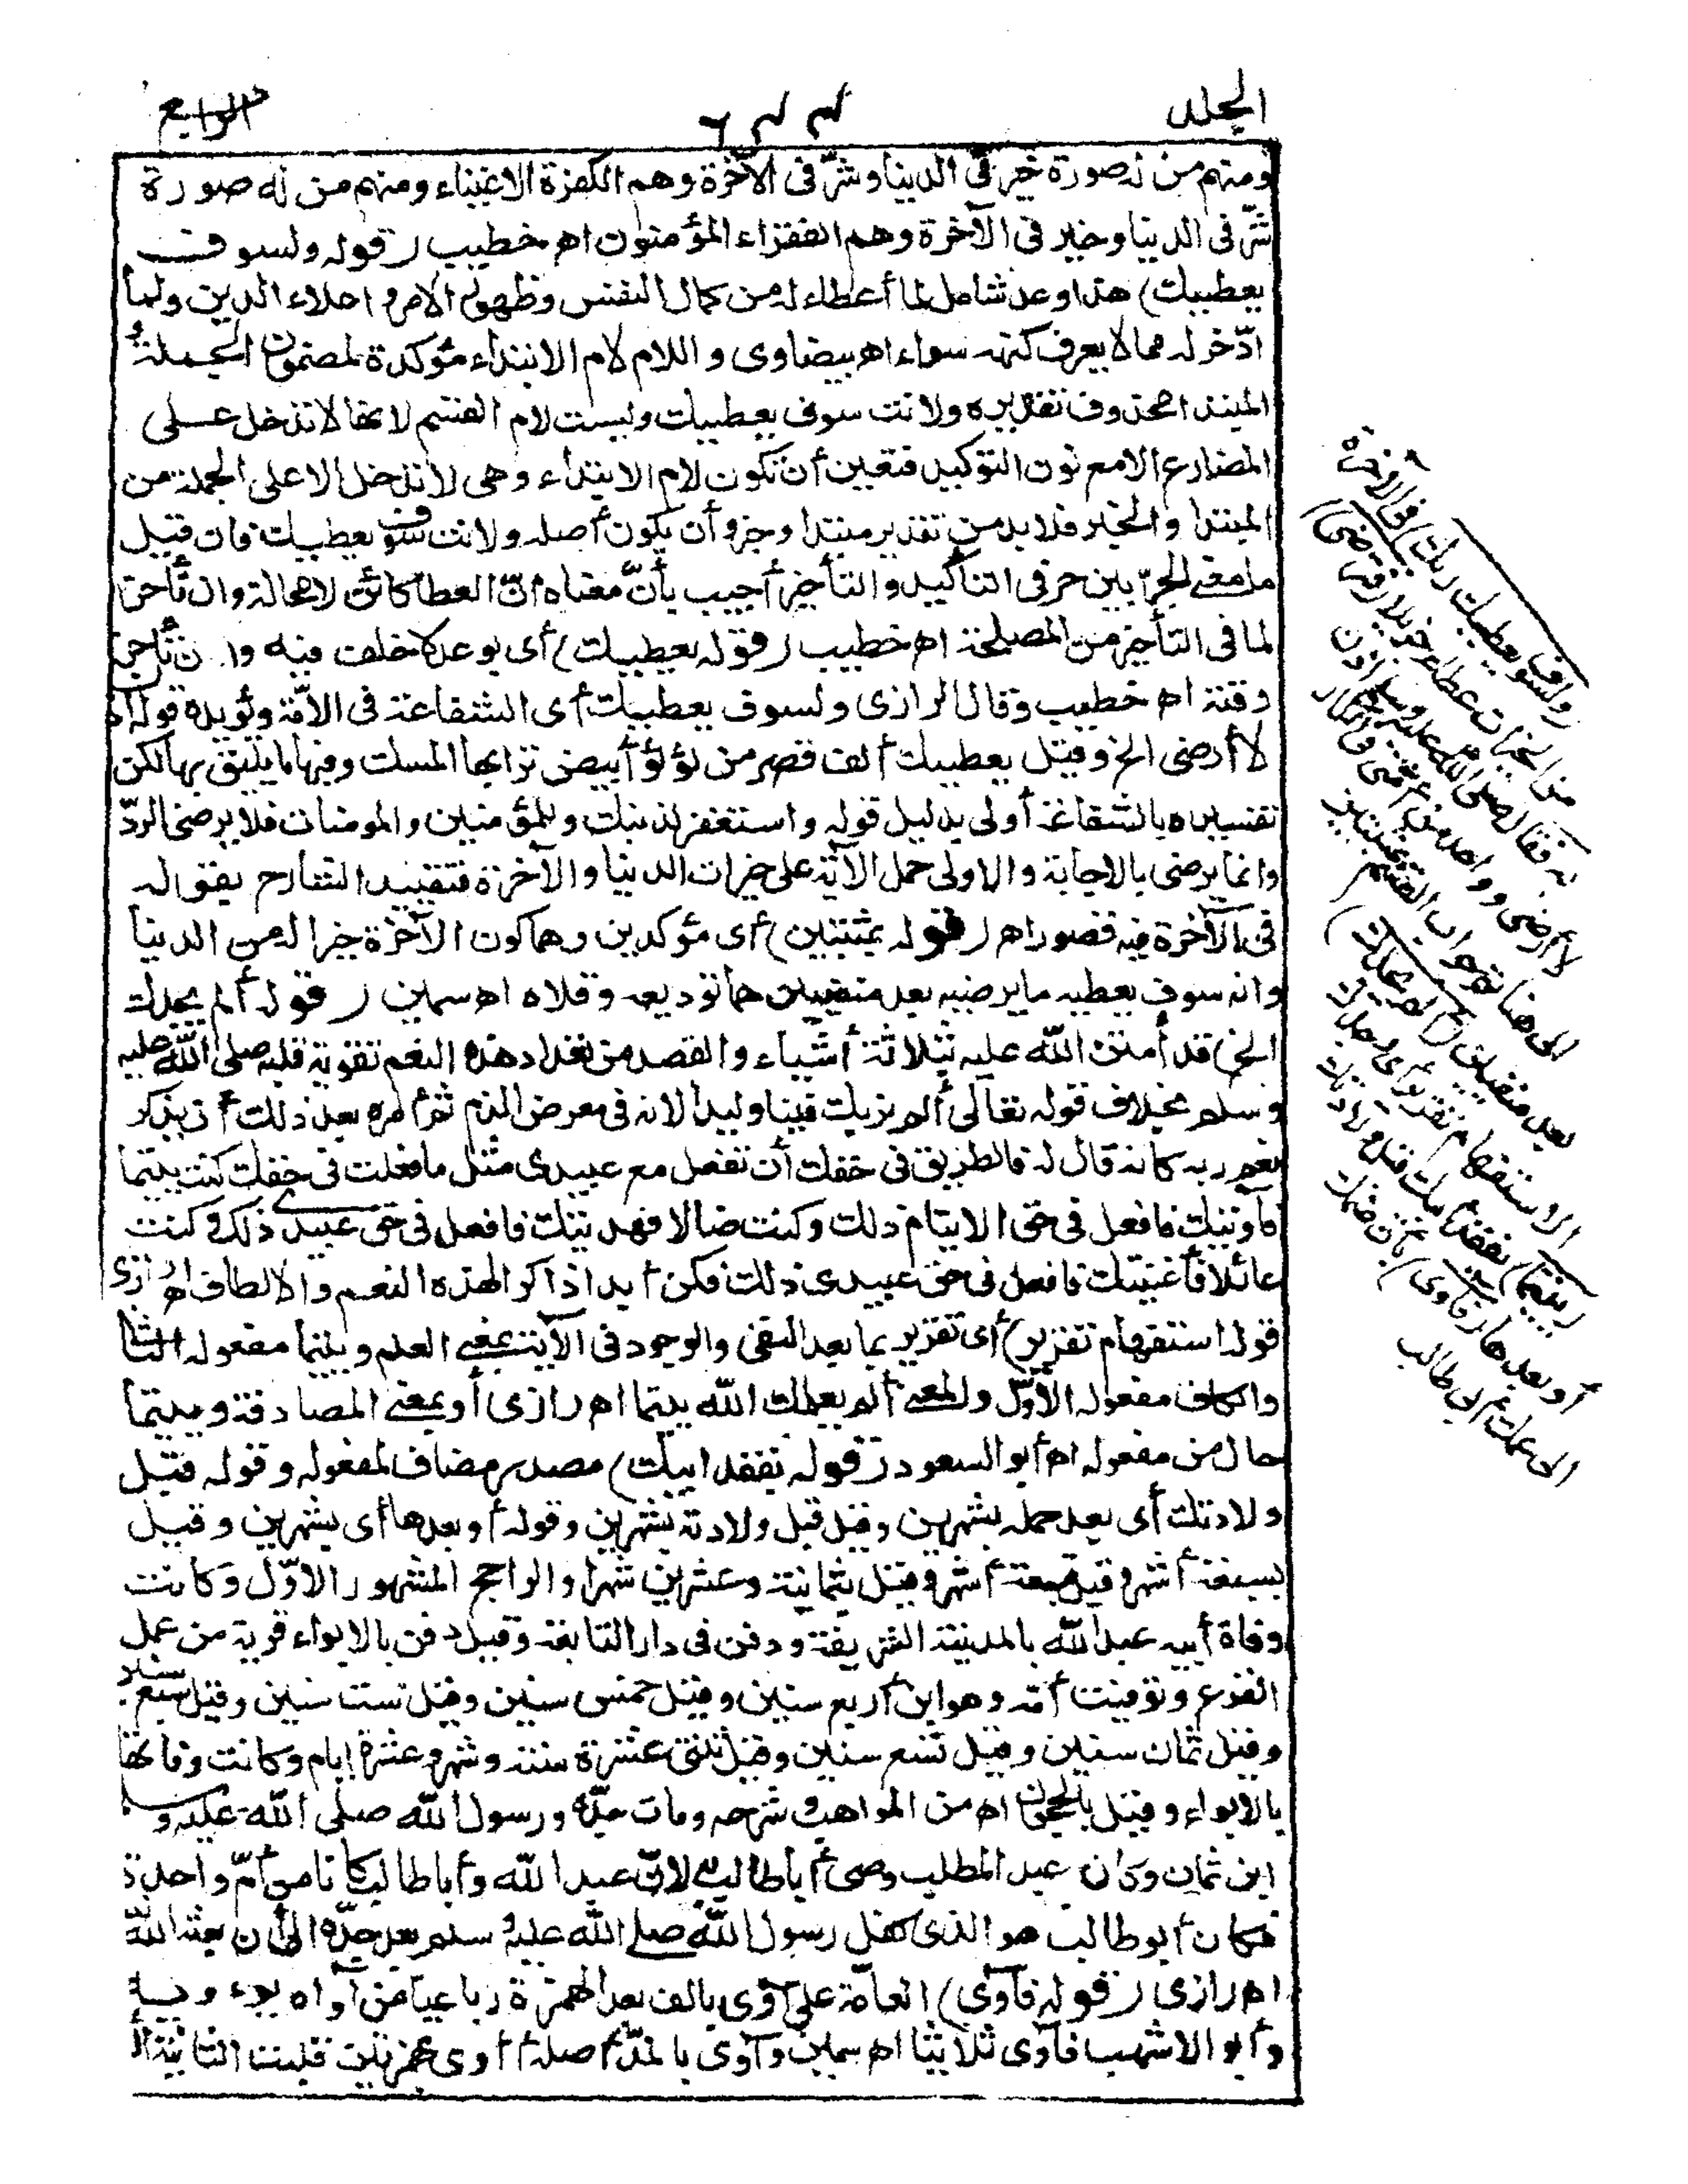 المجلد
٦٤٤
الرابع
ومنهم من له صورة خير فى الدنيا وشرّ فى الآخرة وهم الكفرة الاغنياء ومنهم من له صورة
شرّ فى الدنيا وخير فى الآخرة وهم الفقراء المؤمنون اهـ خطيب (قوله ولسوف
يعطيك) هذا وعد شامل لما أعطاه له من كمال النفس وظهور الامر واعلاء الدين ولما
ادّخر له مما لا يعرف كنهه سواه اهـ بيضاوى واللام لام الابتداء مؤكدة لمضمون الجملة و
المبتدا محذوف تقديره ولانت سوف يعطيك وليست لام القسم لانها لا تدخل على
المضارع الا مع نون التوكيد فتعين أن تكون لام الابتداء وهى لا تدخل الا على الجملة من
المبتدا والخبر فلا بد من تقدير مبتدا وخبر وأن يكون أصله ولانت سوف يعطيك فان قيل
ما معنى الجمع بين حرفى التأكيد والتأخير أجيب بأنّ معناه انّ العطاء كائن لا محالة وان تأخر
لما فى التأخير من المصلحة اهـ خطيب (قوله يعطيك) أى بوعد لا خلف فيه وان تأخر
وقته اهـ خطيب وقال الرازى ولسوف يعطيك أى الشفاعة فى الامّة ويؤيده قوله اذ
لا أرضى الخ وقيل يعطيك ألف قصر من لؤلؤ أبيض ترابها المسك وفيها ما يليق بها لكن
تفسيره بالشفاعة أولى بدليل قوله واستغفر لذنبك وللمؤمنين والمومنات فلا يرضى الردّ
وانما يرضى بالاجابة والاولى حمل الآية على خيرات الدنيا والآخرة فتقييد الشارح بقوله
فى الآخرة فيه قصور اهـ (قوله بمثبتين) أى مؤكدين وهما كون الآخرة خيرا له من الدنيا
وانه سوف يعطيه ما يرضيه بعد منفيين هما توديعه وقلاه اهـ سمين (قوله ألم يجدك
الخ) قد أمتنّ الله عليه بثلاثة أشياء والقصد من تعداد هذه النعم تقوية قلبه صلى الله عليه
وسلم بخلاف قوله تعالى ألم نربك فينا وليدا لانه فى معرض الذم ثم أمره بعد ذلك أن يذكر
نعم ربه كانه قال له فالطريق فى حقك أن تفعل مع عبيدى مثل ما فعلت فى حقك كنت يتيما
فآويتك فافعل فى حق الايتام ذلك وكنت ضالا فهديتك فافعل فى حق عبيدى ذلك وكنت
عائلا فأغنيتك فافعل فى حق عبيدى ذلك فكن أبدا ذاكرا لهذه النعم والالطاف اهـ رازى
قوله استفهام تقرير) أى تقرير بما بعد النفى والوجود فى الآية بمعنى العلم ويتيما مفعوله الثا
والكاف مفعوله الاوّل والمعنى ألم يعلمك الله يتيما اهـ رازى أو بمعنى المصادفة ويتيما
حال من مفعوله اهـ أبو السعود (قوله بفقد أبيك) مصدر مضاف لمفعوله وقوله قبل
ولادتك أى بعد حمله بشهرين وقيل قبل ولادته بشهرين وقوله أو بعدها أى بشهرين وقيل
بسبعة أشهر وقيل بتسعة أشهر وقيل بثمانية وعشرين شهرا والراجح المشهور الاوّل وكانت
وفاة أبيه عبد الله بالمدينة الشريفة ودفن فى دار التابعة وقيل دفن بالابواء قرية من عمل
الفرع وتوفيت أمّه وهو ابن أربع سنين وقيل خمس سنين وقيل ست سنين وقيل سبع سنين
وقيل ثمان سنين وقيل تسع سنين وقيل ثنتى عشرة سنة وشهر وعشرة ايام وكانت وفاتها
بالابواء وقيل بالحجون اهـ من المواهب وشرحه ومات جدّه ورسول الله صلى الله عليه وسلم
ابن ثمان وكان عبد المطلب وصى أبا طالب به لانّ عبد الله وأبا طالب كانا من أمّ واحدة
فكان أبو طالب هو الذى كفل رسول الله صلى الله عليه وسلم بعد جدّه الى أن بعثه الله
اهـ رازى (قوله فآوى) العامّة على آوى بالف بعد الهمزة رباعيا من آواه يؤويه
وأبو الاشهب فأوى ثلاثيا اهـ سمين وآوى بالمدّ أصله أأوى بهمزتين قلبت الثانية ا
(ولسوف يعطيك ربك) فى الآخرة
من الخيرات عطاء جزيلا (فترضى)
به فقال صلى الله عليه وسلم اذن
لا أرضى وواحد من أمّتى فى النار
الى هنا تم جواب القسم بمثبتين
بعد منفيين (ألم يجدك)
الاستفهام تقرير أى وجدك
(يتيما) بفقد أبيك قبل ولادتك
أو بعدها (فآوى) بأن ضمك
الى عمك أبى طالب